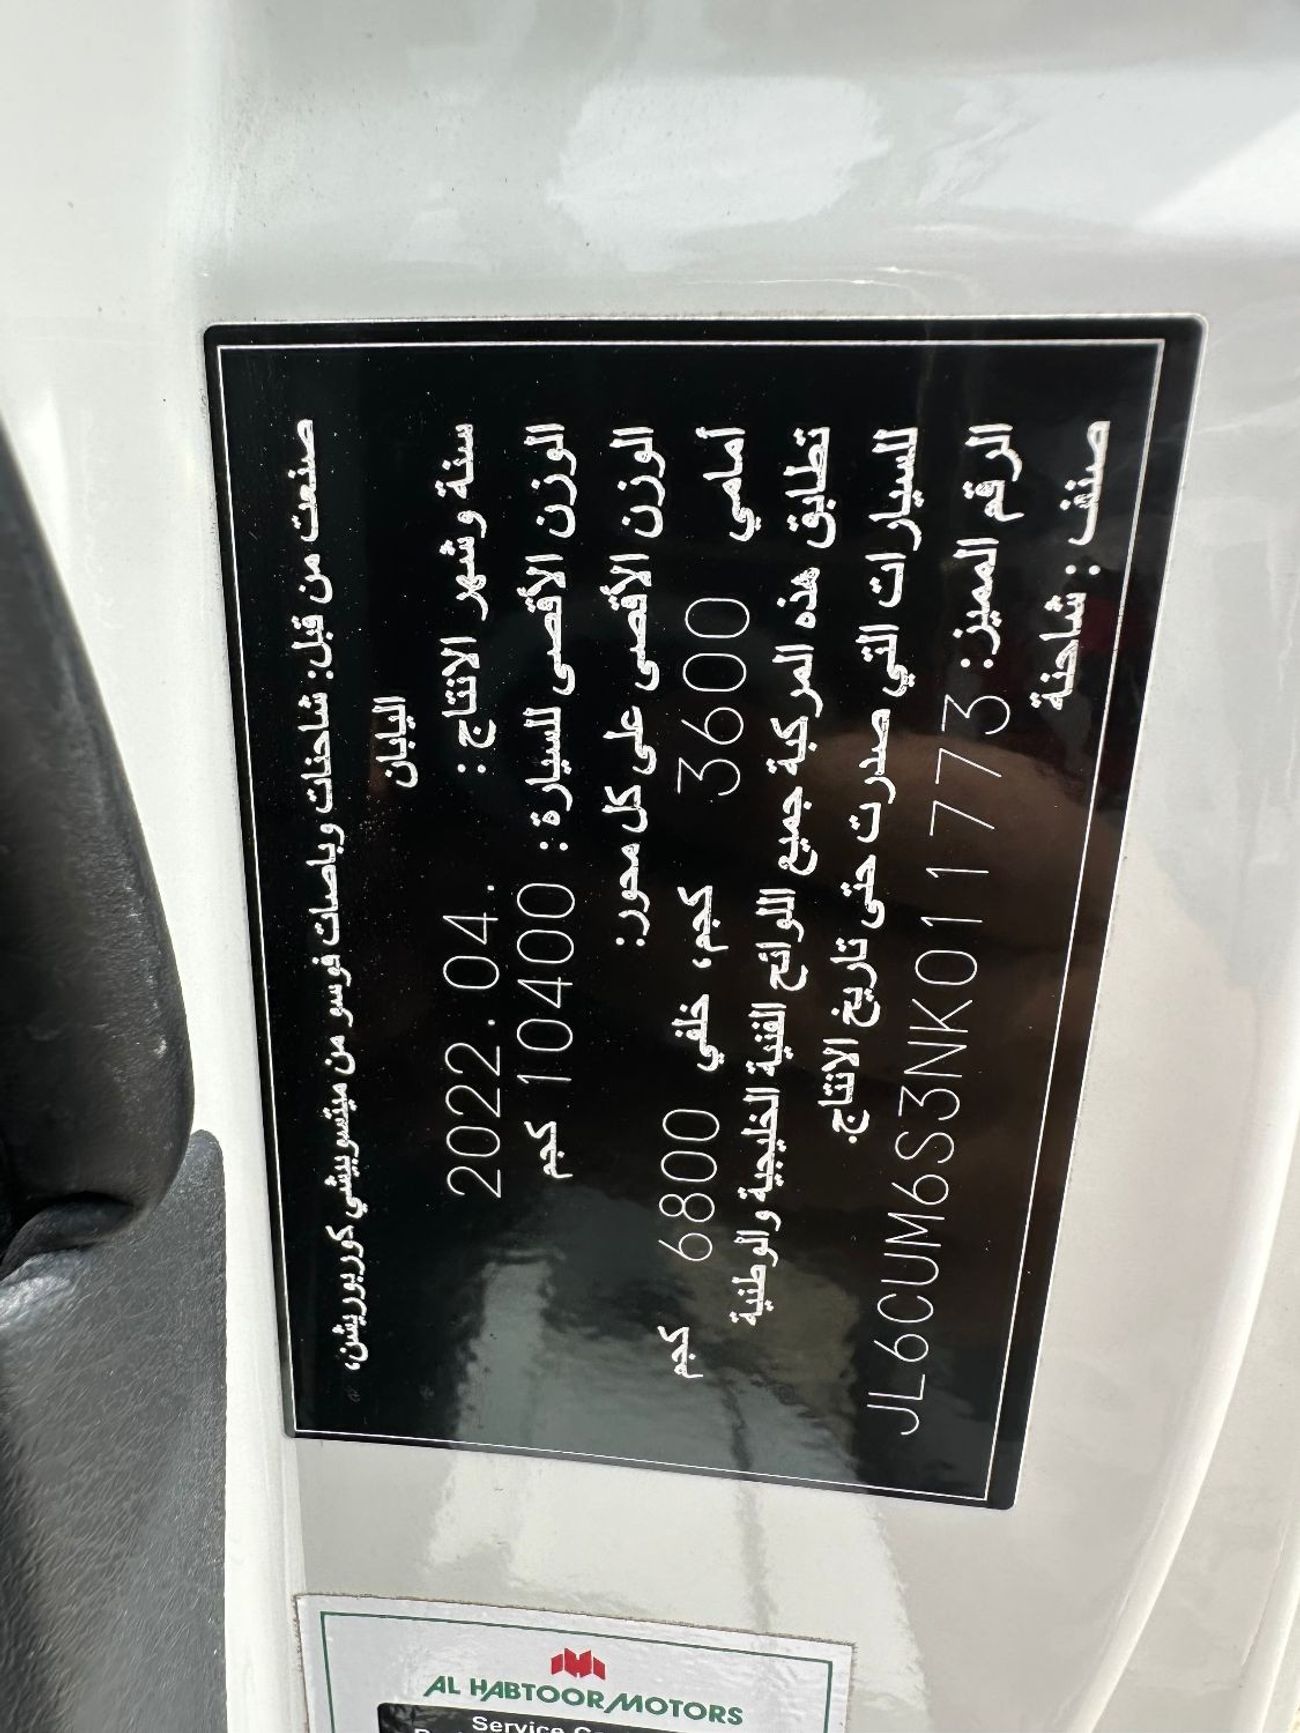 صنعت من قبل: شاحنات وباصات فوسو من ميتسوبيشي كوربوريشن،
اليابان
سنة وشهر الانتاج : 2022.04.
الوزن الأقصى للسيارة : 10400 كجم
الوزن الأقصى على كل محور:
أمامي 3600 كجم، خلفي 6800 كجم
تطابق هذه المركبة جميع اللوائح الفنية الخليجية والوطنية
للسيارات التي صدرت حتى تاريخ الانتاج.
الرقم المميز: JL6CUM6S3NK011773
صنف : شاحنة
AL HABTOOR MOTORS
Service